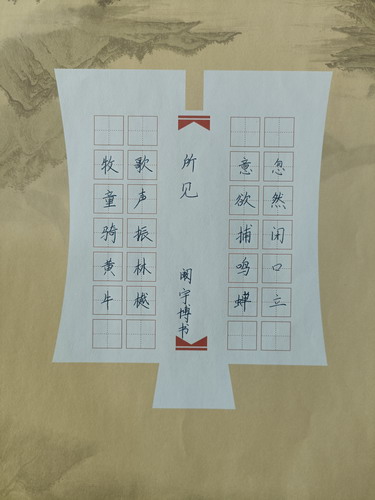 牧童骑黄牛
歌声振林樾
所见
阚宇博书
意欲捕鸣蝉
忽然闭口立